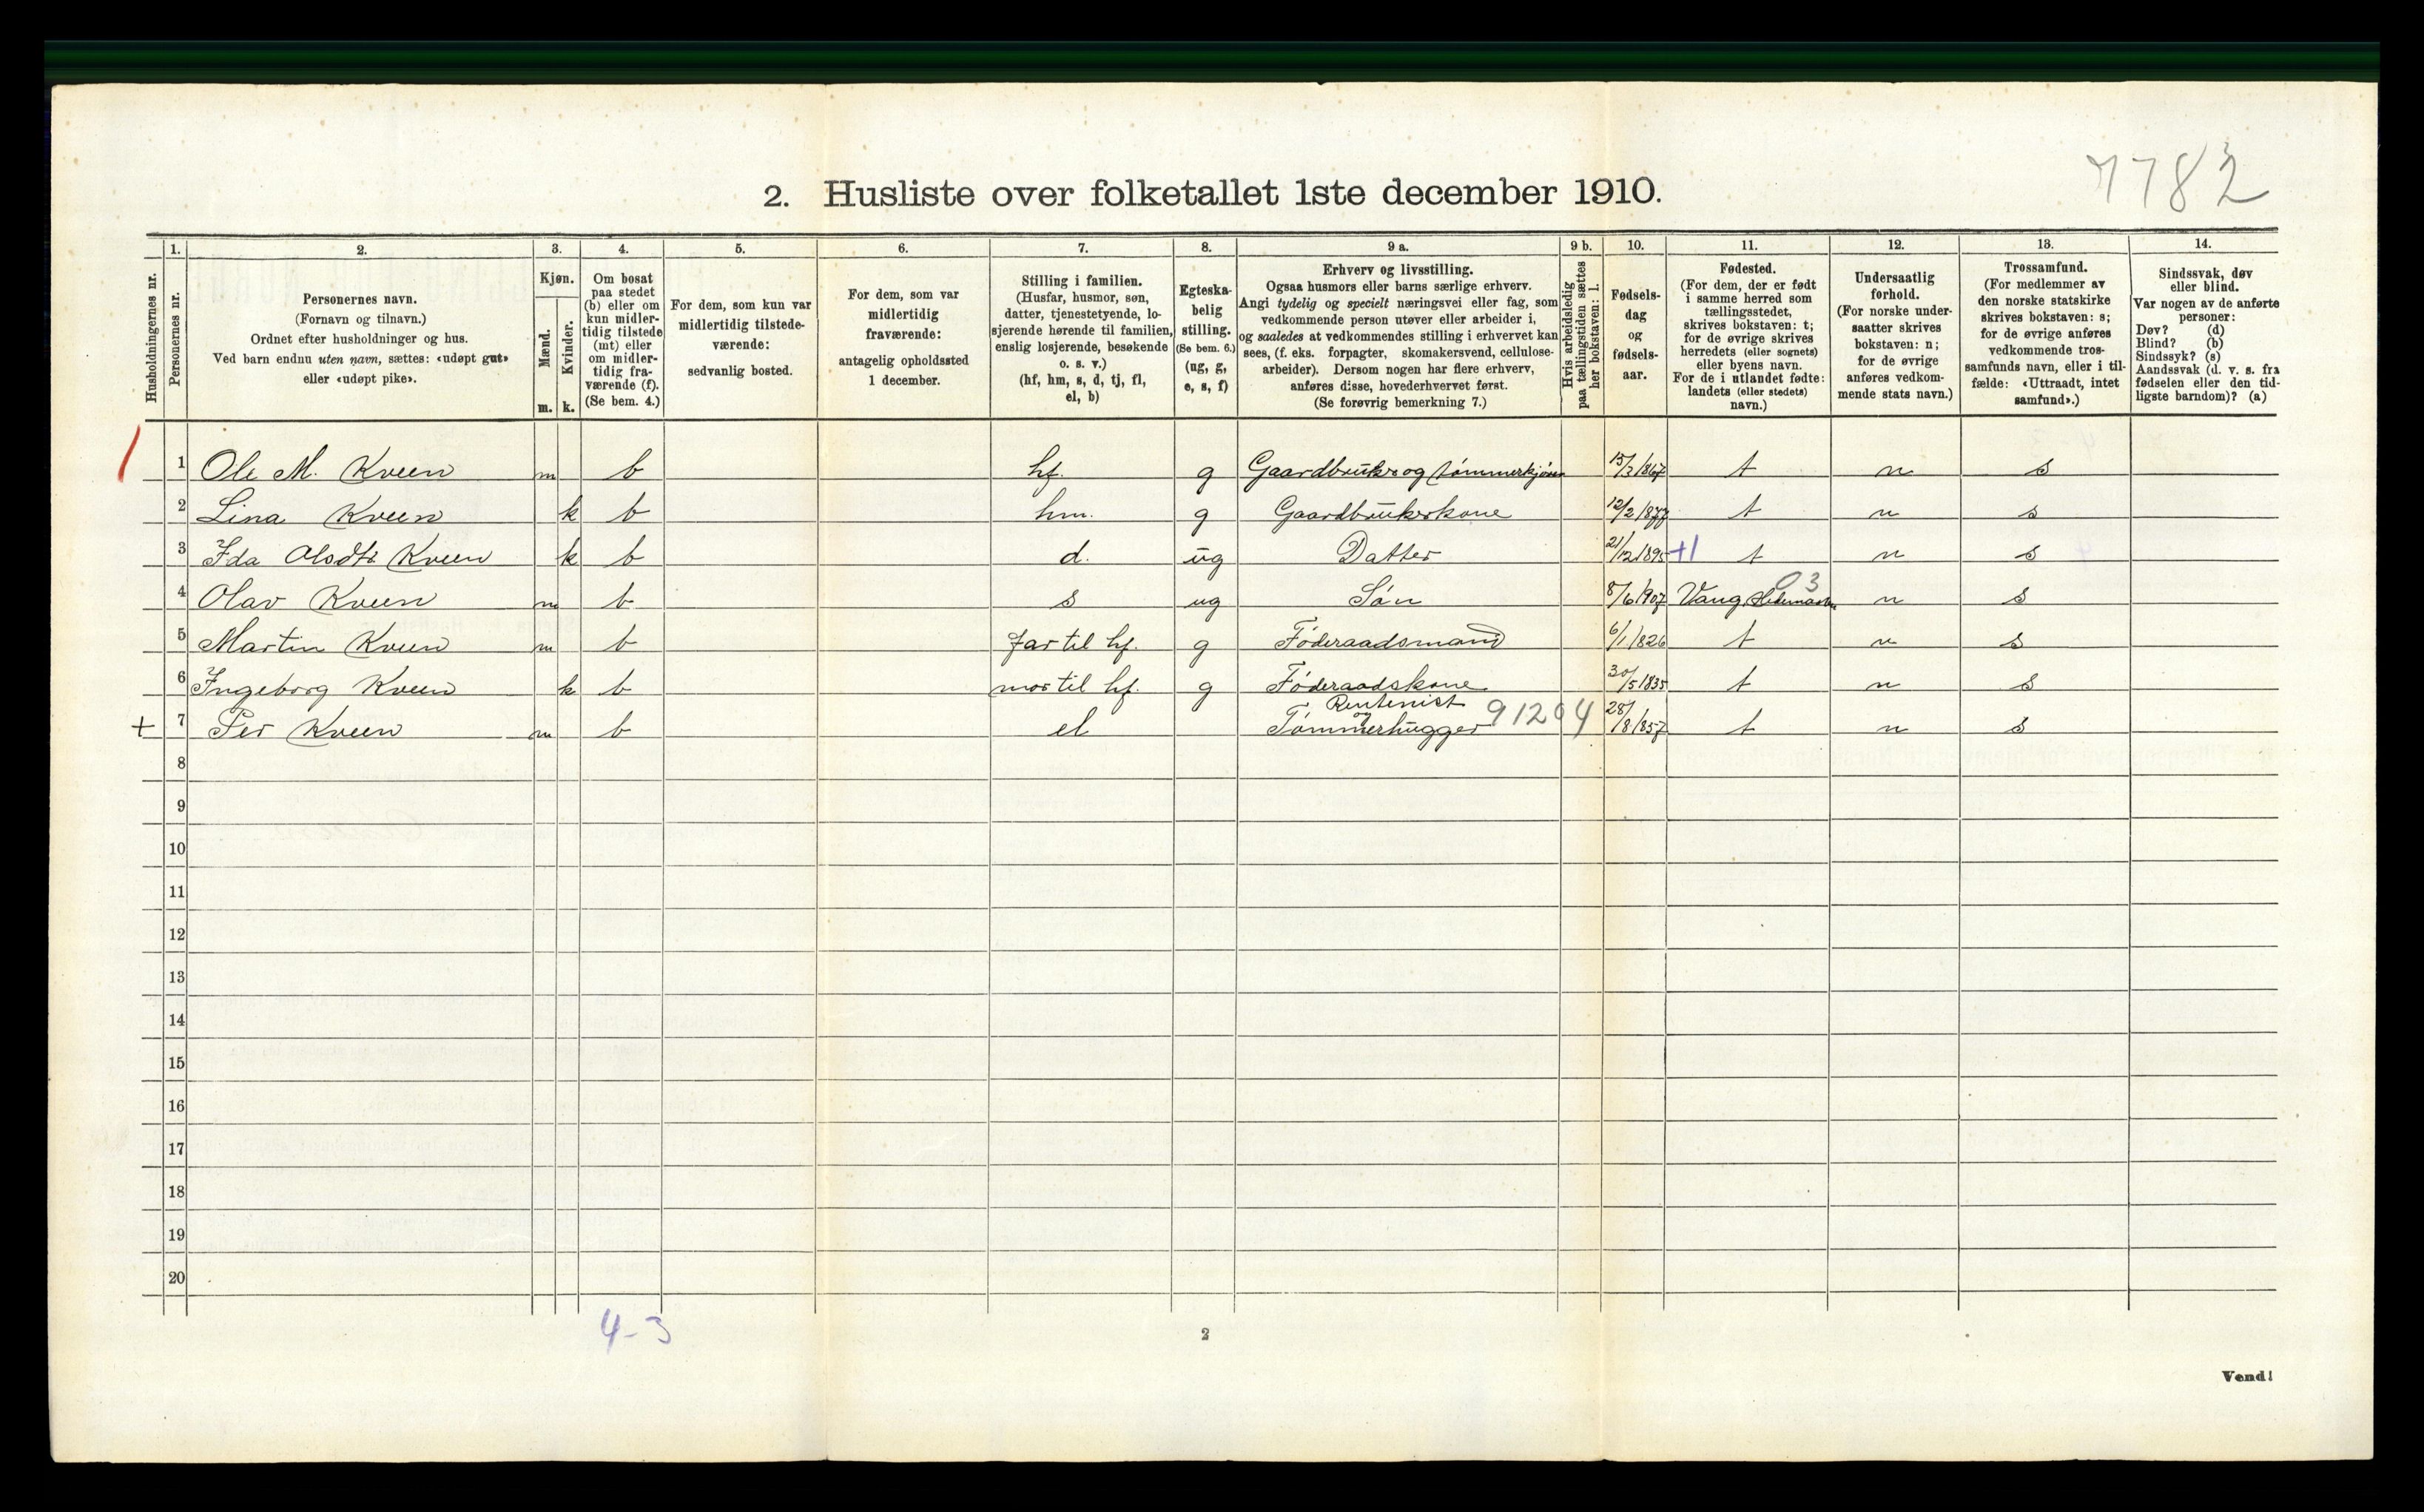 7782
2. Husliste over folketallet 1ste december 1910.
Husholdningernes nr.
1. Personernes nr.
2. Personernes navn. (Fornavn og tilnavn.) Ordnet efter husholdninger og hus. Ved barn endnu uten navn, sættes: «udøpt gut» eller «udøpt pike».
3. Kjøn. Mænd. m. Kvinder. k.
4. Om bosat paa stedet (b) eller om kun midlertidig tilstede (mt) eller om midlertidig fraværende (f). (Se bem. 4.)
5. For dem, som kun var midlertidig tilstedeværende: sedvanlig bosted.
6. For dem, som var midlertidig fraværende: antagelig opholdssted 1 december.
7. Stilling i familien. (Husfar, husmor, søn, datter, tjenestetyende, losjerende hørende til familien, enslig losjerende, besøkende o. s. v.) (hf, hm, s, d, tj, fl, el, b)
8. Egteskabelig stilling. (Se bem. 6.) (ug, g, e, s, f)
9 a. Erhverv og livsstilling. Ogsaa husmors eller barns særlige erhverv. Angi tydelig og specielt næringsvei eller fag, som vedkommende person utøver eller arbeider i, og saaledes at vedkommendes stilling i erhvervet kan sees, (f. eks. forpagter, skomakersvend, cellulosearbeider). Dersom nogen har flere erhverv, anføres disse, hovederhvervet først. (Se forøvrig bemerkning 7.)
9 b. Hvis arbeidsledig paa tællingstiden sættes her bokstaven: l.
10. Fødselsdag og fødselsaar.
11. Fødested. (For dem, der er født i samme herred som tællingsstedet, skrives bokstaven: t; for de øvrige skrives herredets (eller sognets) eller byens navn. For de i utlandet fødte: landets (eller stedets) navn.)
12. Undersaatlig forhold. (For norske undersaatter skrives bokstaven: n; for de øvrige anføres vedkommende stats navn.)
13. Trossamfund. (For medlemmer av den norske statskirke skrives bokstaven: s; for de øvrige anføres vedkommende trossamfunds navn, eller i tilfælde: «Uttraadt, intet samfund».)
14. Sindssvak, døv eller blind. Var nogen av de anførte personer: Døv? (d) Blind? (b) Sindssyk? (s) Aandssvak (d. v. s. fra fødselen eller den tidligste barndom)? (a)
1 1 Ole M. Kveen m b hf. g Gaardbruker og tømmerkjører 15/3 1867 t n s
2 Lina Kveen k b hm. g Gaardbrukerkone 12/2 1877 t n s
3 Ida Olsdtr Kveen k b d. ug Datter 21/12 1895 +1 t n s
4 Olav Kveen m b s ug Søn 8/6 1907 Vang Hedemarken 03 n s
5 Martin Kveen m b far til hf. g Føderaadsmand 6/1 1826 t n s
6 Ingeborg Kveen k b mor til hf. g Føderaadskone 30/5 1835 t n s
+ 7 Per Kveen m b el Rentenist og Tømmerhugger 91204 28/8 1857 t n s
8
9
10
11
12
13
14
15
16
17
18
19
20
4-3
2
Vend!